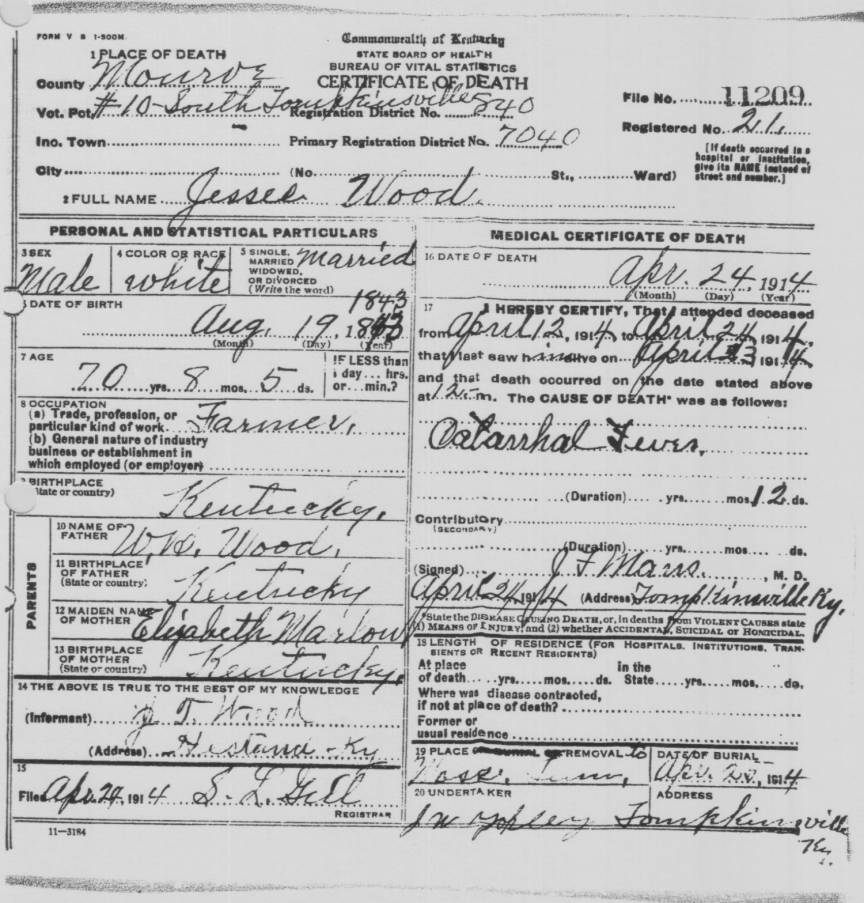 FORM V S 1-500M.
Commonwealth of Kentucky
STATE BOARD OF HEALTH
BUREAU OF VITAL STATISTICS
CERTIFICATE OF DEATH
1 PLACE OF DEATH
County Monroe
Vot. Pct. #10-South Tompkinsville Registration District No. 840
File No. 11209
Registered No. 21.
Inc. Town Primary Registration District No. 7040
[If death occurred in a hospital or institution, give its NAME instead of street and number.]
City (No. St., Ward)
2 FULL NAME Jessee Wood.
PERSONAL AND STATISTICAL PARTICULARS
3 SEX Male
4 COLOR OR RACE white
5 SINGLE, MARRIED WIDOWED, OR DIVORCED (Write the word) Married
6 DATE OF BIRTH 1843
Aug. 19, 18
(Month) (Day) (Year)
7 AGE
70 yrs. 8 mos. 5 ds.
IF LESS than 1 day... hrs. or... min.?
8 OCCUPATION
(a) Trade, profession, or
particular kind of work Farmer.
(b) General nature of industry
business or establishment in
which employed (or employer)
9 BIRTHPLACE
(State or country) Kentucky.
PARENTS
10 NAME OF FATHER W.H. Wood.
11 BIRTHPLACE OF FATHER (State or country) Kentucky
12 MAIDEN NAME OF MOTHER Elizabeth Marlow
13 BIRTHPLACE OF MOTHER (State or country) Kentucky.
14 THE ABOVE IS TRUE TO THE BEST OF MY KNOWLEDGE
(Informant) J T. Wood
(Address) Hestand - Ky
15
Filed Apr. 24, 1914 S. L. REGISTRAR
11-3184
MEDICAL CERTIFICATE OF DEATH
16 DATE OF DEATH
Apr. 24, 1914
(Month) (Day) (Year)
17 I HEREBY CERTIFY, That I attended deceased
from April 12, 1914, to April 24, 1914,
that I last saw him alive on April 23 1914
and that death occurred on the date stated above
at 12 m. The CAUSE OF DEATH* was as follows:
Catarrhal Fever.
(Duration) yrs. mos. 12 ds.
Contributory
(SECONDARY)
(Duration) yrs. mos. ds.
(Signed) J F Marrs. , M. D.
April 24, 1914 (Address) Tompkinsville Ky.
*State the DISEASE CAUSING DEATH, or, in deaths from VIOLENT CAUSES state
(1) MEANS OF INJURY; and (2) whether ACCIDENTAL, SUICIDAL OR HOMICIDAL.
18 LENGTH OF RESIDENCE (FOR HOSPITALS, INSTITUTIONS, TRAN-
SIENTS OR RECENT RESIDENTS)
At place in the
of death yrs. mos. ds. State yrs. mos. ds.
Where was disease contracted,
if not at place of death?
Former or
usual residence
19 PLACE OF BURIAL OR REMOVAL DATE OF BURIAL
Apr. 1914
20 UNDERTAKER ADDRESS
J W Tompkinsville
Ky.